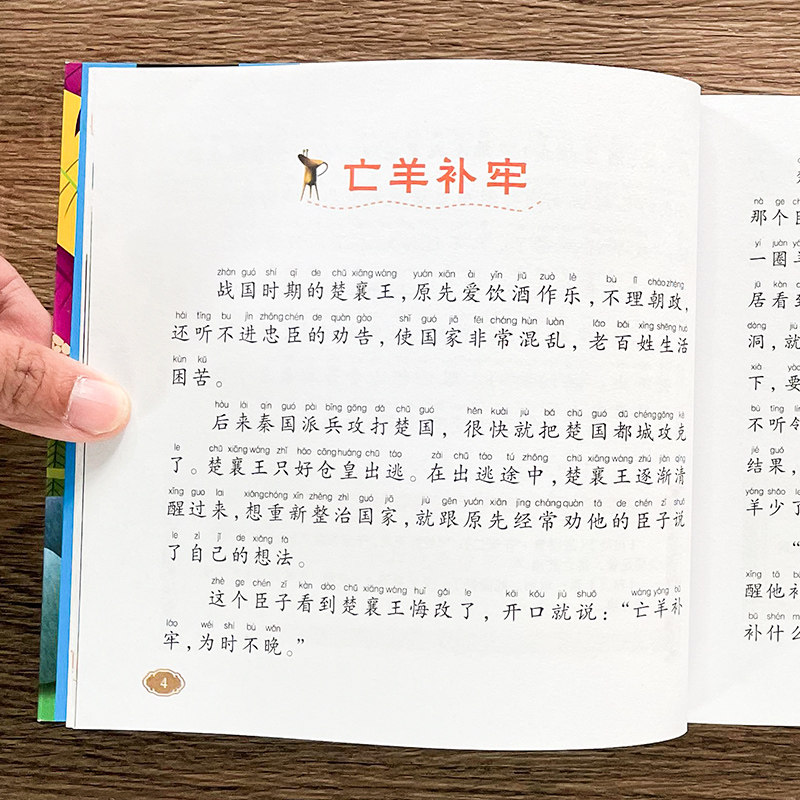 亡羊补牢
zhàn guó shí qī de chǔ xiāng wáng yuán xiān ài yǐn jiǔ zuò lè bù lǐ cháo zhèng
战国时期的楚襄王，原先爱饮酒作乐，不理朝政，
hái tīng bu jìn zhōng chén de quàn gào shǐ guó jiā fēi cháng hùn luàn lǎo bǎi xìng shēng huó
还听不进忠臣的劝告，使国家非常混乱，老百姓生活
kùn kǔ
困苦。
hòu lái qín guó pài bīng gōng dǎ chǔ guó hěn kuài jiù bǎ chǔ guó dū chéng gōng kè
后来秦国派兵攻打楚国，很快就把楚国都城攻克
le chǔ xiāng wáng zhǐ hǎo cāng huáng chū táo zài chū táo tú zhōng chǔ xiāng wáng zhú jiàn qīng
了。楚襄王只好仓皇出逃。在出逃途中，楚襄王逐渐清
xǐng guò lai xiǎng chóng xīn zhěng zhì guó jiā jiù gēn yuán xiān jīng cháng quàn tā de chén zǐ shuō
醒过来，想重新整治国家，就跟原先经常劝他的臣子说
le zì jǐ de xiǎng fǎ
了自己的想法。
zhè ge chén zǐ kàn dào chǔ xiāng wáng huǐ gǎi le kāi kǒu jiù shuō wáng yáng bǔ
这个臣子看到楚襄王悔改了，开口就说：“亡羊补
láo wéi shí bù wǎn
牢，为时不晚。”
4
nà ge
那个
yì juàn
一圈
jū kàn
居看到
dòng jiù
洞，就
xià yào
下，要
bù tīng
不听
jié guǒ
结果，
yáng shǎo le
羊少了
“
xǐng tā bǔ
醒他补
bǔ shén me
补什么